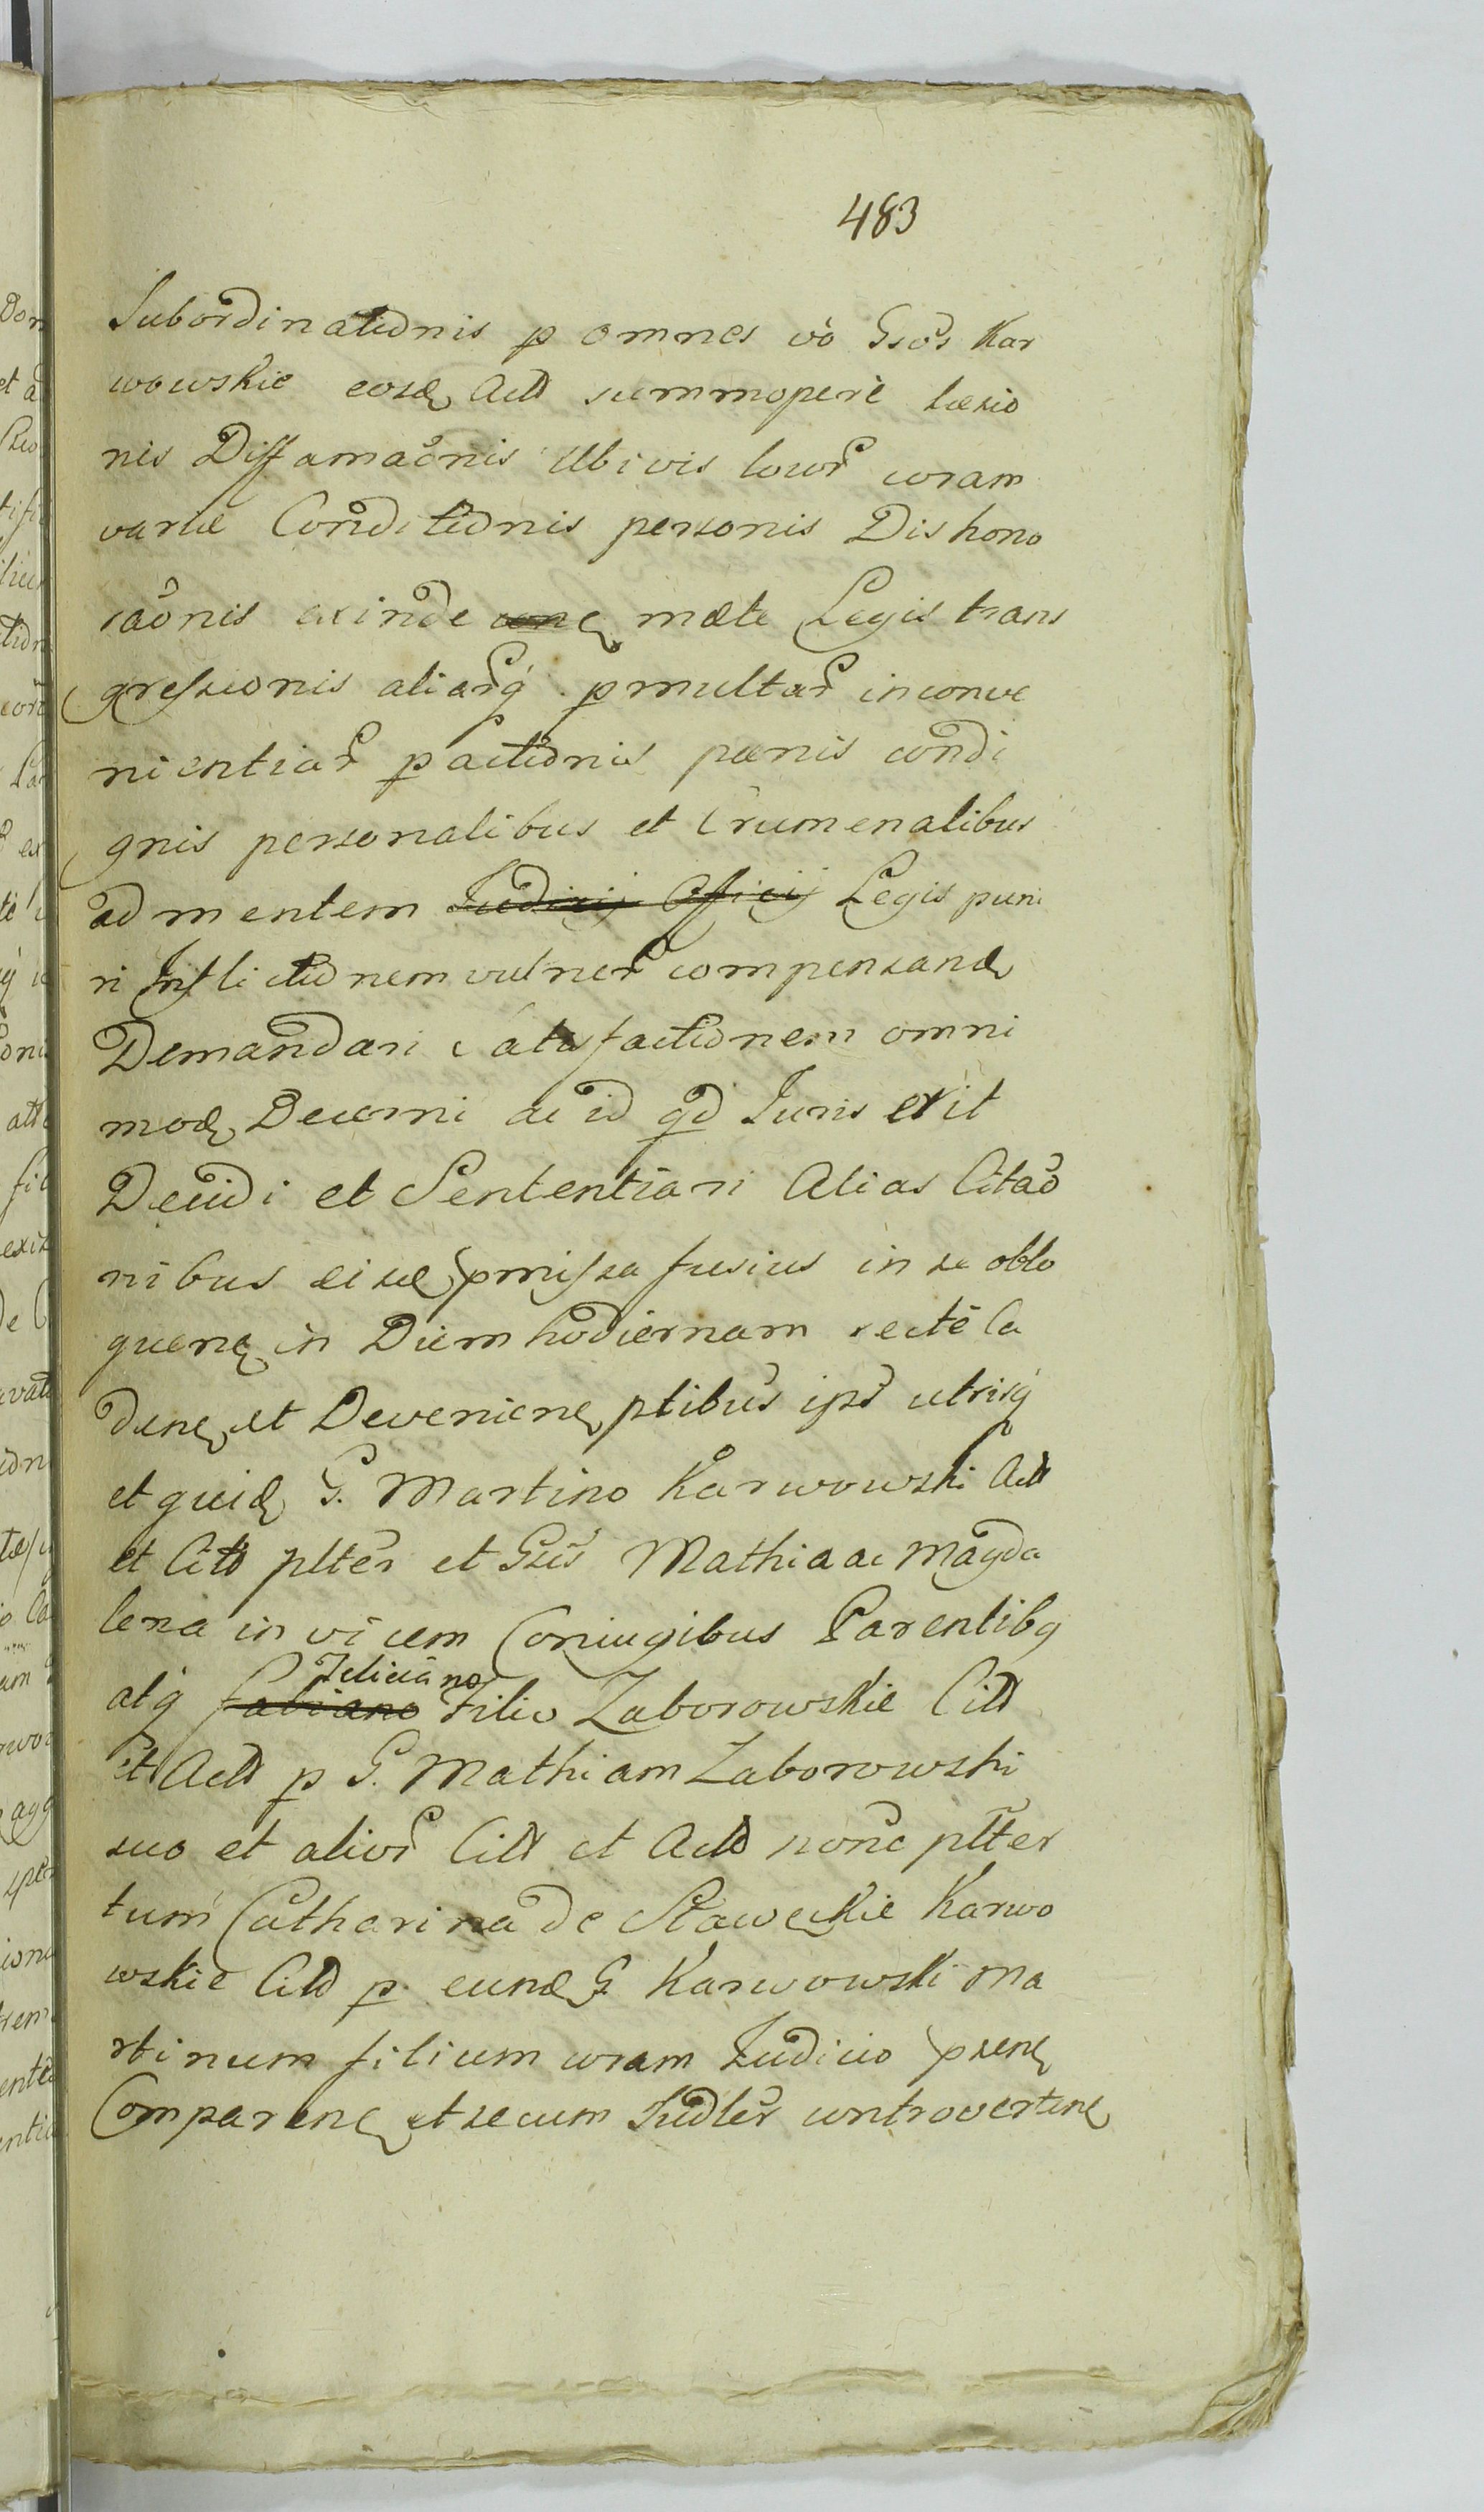 483
Subordinationis p omnes vo Gsos Kar
wowskie eosd Actt summoperè læsio
nis Diffamaõnis Ubivis locor coram
variæ Conditionis personis Dishono
raõnis exinde mæte Legis trans
gressionis aliarq pmultar inconve
nientiar pactionis pænis condi
gnis personalibus et Crumenalibus
ad mentem Judicij Officij Legis puni
ri Inflictionem vulner compensand
Demandari satisfactionem omni
mod Decerni ac id qd Juris erit
Decidi et Sententiari Alias Citaõ
nibus eisd pmissa fusius in se oblo
quen in Diem hodiernam recte Ca
den et Devenien ptibus ips utrisq
et quid G. Martino Karwowski Act
et Citto plter et Gsis Mathia ac Magda
lena invicem Coniugibus Parentibq
atq Fabiano Feliciano Filio Zaborowskie Citt
et Actt p G. Mathiam Zaborowski
suo et alior Citt et Actt nõne plter
tum Catharina de Sławeckie Karwo
wskie Citt p eund G. Karwowski Ma
rtinum filium coram Judicio psen
Comparen et secum Judler controverten